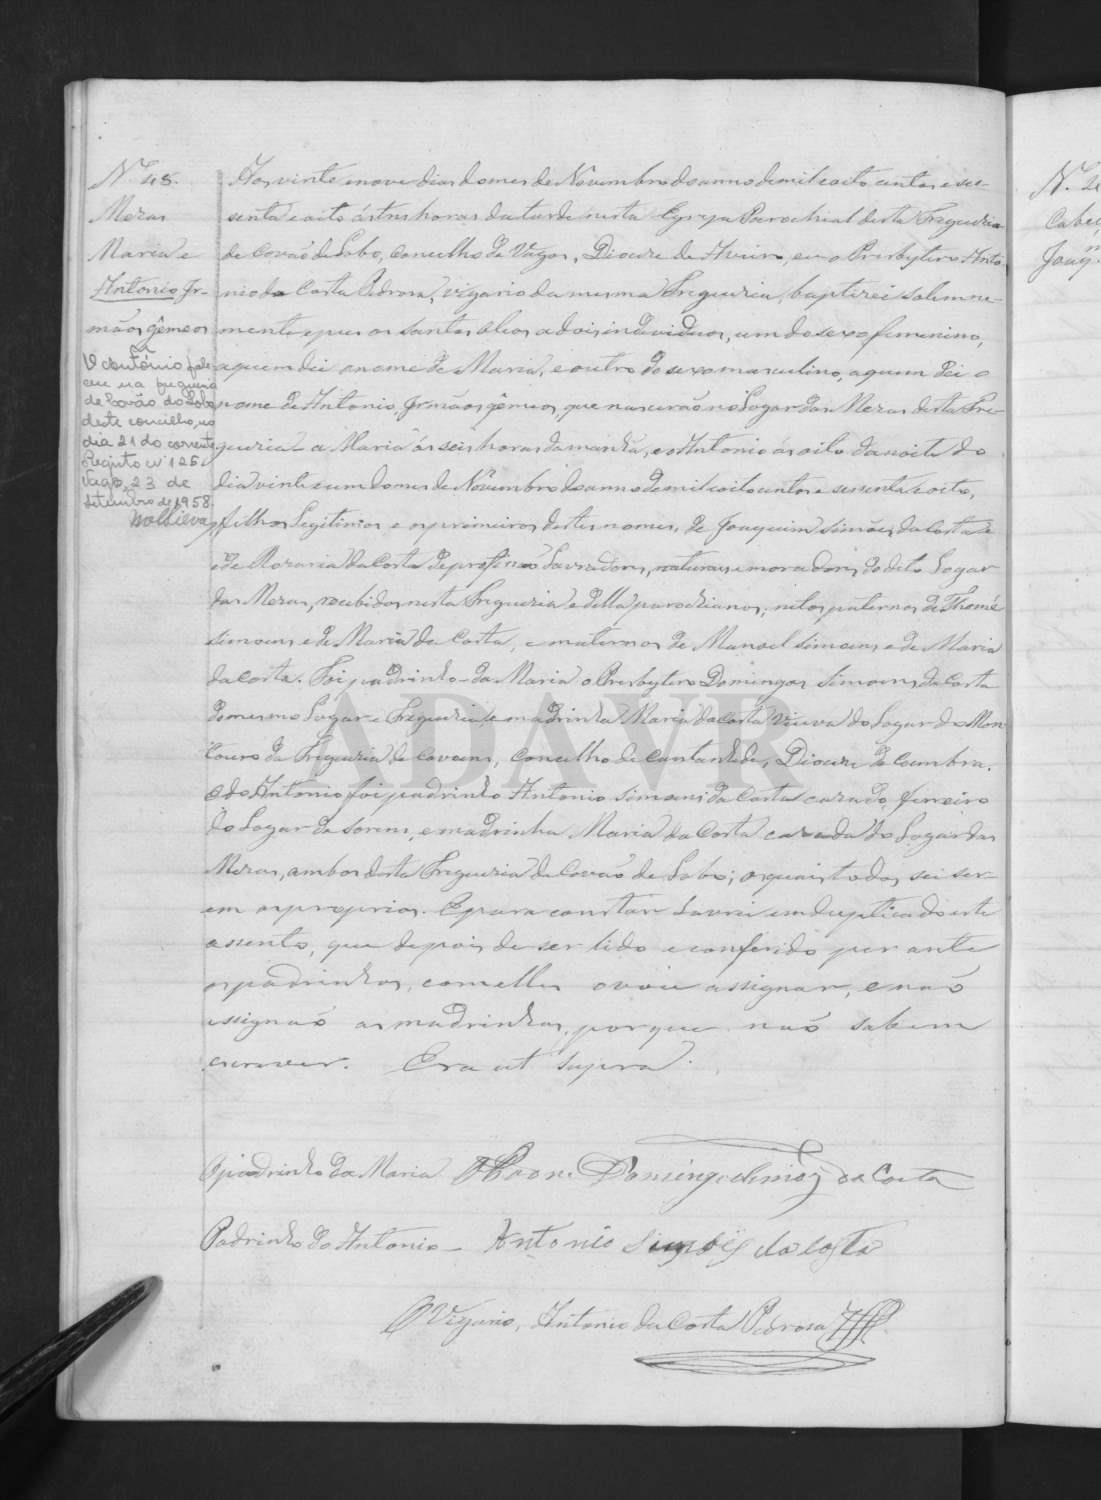 N.º 48.
Mezas
Maria e
Antonio Ir-
mãos gêmeos
O António fale-
ceu na freguesia
de Covão do Lobo
deste concelho, no
dia 21 do corrente
Registo nº 125
Vagos, 23 de
setembro de 1958.
Aos vinte e nove dias do mes de Novembro do anno de mil oito centos e ses-
senta e oito ás tres horas da tarde nesta Egreja Parochial desta Freguezia
de Covão de Lobo, Concelho de Vagos, Diocese de Aveiro, eu o Presbytero Anto-
nio da Costa Pedrosa, vigario da mesma Freguezia, baptizei solemne-
mente e puz os santos oleos a dois individuos, um do sexo femenino,
a quem dei o nome de Maria, e outro do sexo masculino, a quem dei o
nome de Antonio, Irmãos gêmeos, que nascerão no Logar das Mezas desta Fre-
guezia a Maria ás seis horas da manhã, e o Antonio ás oito da noite do
dia vinte e um do mes de Novembro do anno de mil oito centos e sessenta e oito,
filhos Legitimos e os primeiros destes nomes, de Joaquim Simões da Costa e
de Rozaria da Costa de profissão Lavradores, naturaes e moradores do dito Logar
das Mezas, recebidos nesta Freguezia e della parochianos; netos paternos de Thomé
Simoens e de Maria da Costa, e maternos de Manoel Simoens e de Maria
da Costa. Foi padrinho da Maria o Presbytero Domingos Simoens da Costa
do mesmo Logar e Freguezia, e madrinha Maria da Costa Viuva do Logar do Mon-
touro da Freguezia de Covoens, Concelho de Cantanhede, Diocese de Coimbra.
E do Antonio foi padrinho Antonio Simoens da Costa cazado, Ferreiro
do Logar de Sorens, e madrinha Maria da Costa cazada do Logar das
Mezas, ambos desta Freguezia de Covão de Lobo; os quais todos sei ser-
em os proprios. E para constar Lavrei em duplicado este
assento, que depois de ser lido e conferido per ante
os padrinhos, com elles o vou assignar, e não
assignão as madrinhas, por que não sabem
escrever. Era ut supra.
O padrinho da Maria Domingos Simões da Costa
Padrinho do Antonio - Antonio Simões da Costa
O Vigario, Antonio da Costa Pedrosa
N. 
Cabeç
Joaq.m
ADAVR